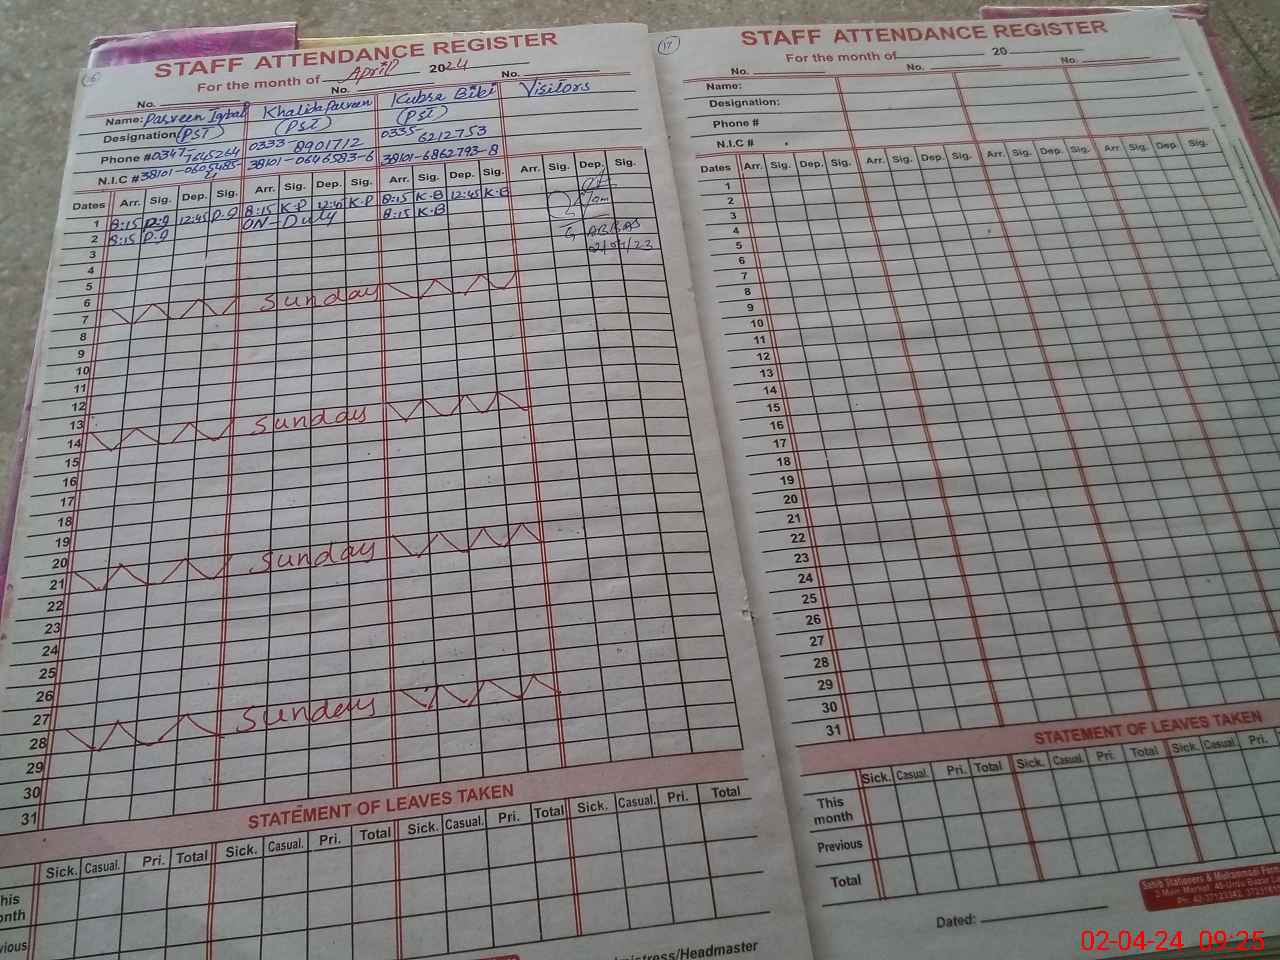 16
STAFF ATTENDANCE REGISTER
For the month of April 2024
No. No. No.
Name: Parveen Iqbal Khalida Parveen Kubra Bibi Visitors
Designation (PST) (PST) (PST)
Phone # 0347- 7645264 0333-8901712 0335- 6212753
N.I.C # 38101-0605485- 38101-0646583-6 38101-6862793-8
Dates Arr. Sig. Dep. Sig. Arr. Sig. Dep. Sig. Arr. Sig. Dep. Sig. Arr. Sig. Dep. Sig.
1 8:15 P.I 12:45 P.I 8:15 K.P 12:45 K.P 8:15 K-B 12:45 K-B
2 8:15 P.I ON-Duty 8:15 K-B
3
4
5
6
7 Sunday
8
9
10
11
12
13
14 Sunday
15
16
17
18
19
20
21 Sunday
22
23
24
25
26
27
28 Sunday
29
30
31
STATEMENT OF LEAVES TAKEN
Sick. Casual. Pri. Total Sick. Casual. Pri. Total Sick. Casual. Pri. Total
This
month
Previous
mistress/Headmaster
17
STAFF ATTENDANCE REGISTER
For the month of 20
No. No. No.
Name:
Designation:
Phone #
N.I.C #
Dates Arr. Sig. Dep. Sig. Arr. Sig. Dep. Sig. Arr. Sig. Dep. Sig. Arr. Sig. Dep. Sig.
1
2
3
4
5
6
7
8
9
10
11
12
13
14
15
16
17
18
19
20
21
22
23
24
25
26
27
28
29
30
31
STATEMENT OF LEAVES TAKEN
Sick. Casual. Pri. Total Sick. Casual. Pri. Total Sick. Casual. Pri.
This
month
Previous
Total
Dated:
02-04-24 09:25